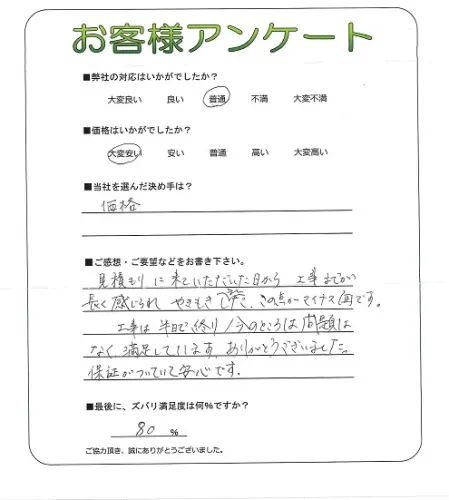 お客様アンケート
■弊社の対応はいかがでしたか?
大変良い 良い 普通 不満 大変不満
■価格はいかがでしたか?
大変安い 安い 普通 高い 大変高い
■当社を選んだ決め手は?
価格
■ご感想・ご要望などをお書き下さい。
見積もりに来ていただいた日から 工事までが
長く感じられ やきもき この点がマイナス面です。
工事は半日で終り 今のところは問題は
なく満足しています。ありがとうございました。
保証がついていて安心です。
■最後に、ズバリ満足度は何%ですか?
80 %
ご協力頂き、誠にありがとうございました。